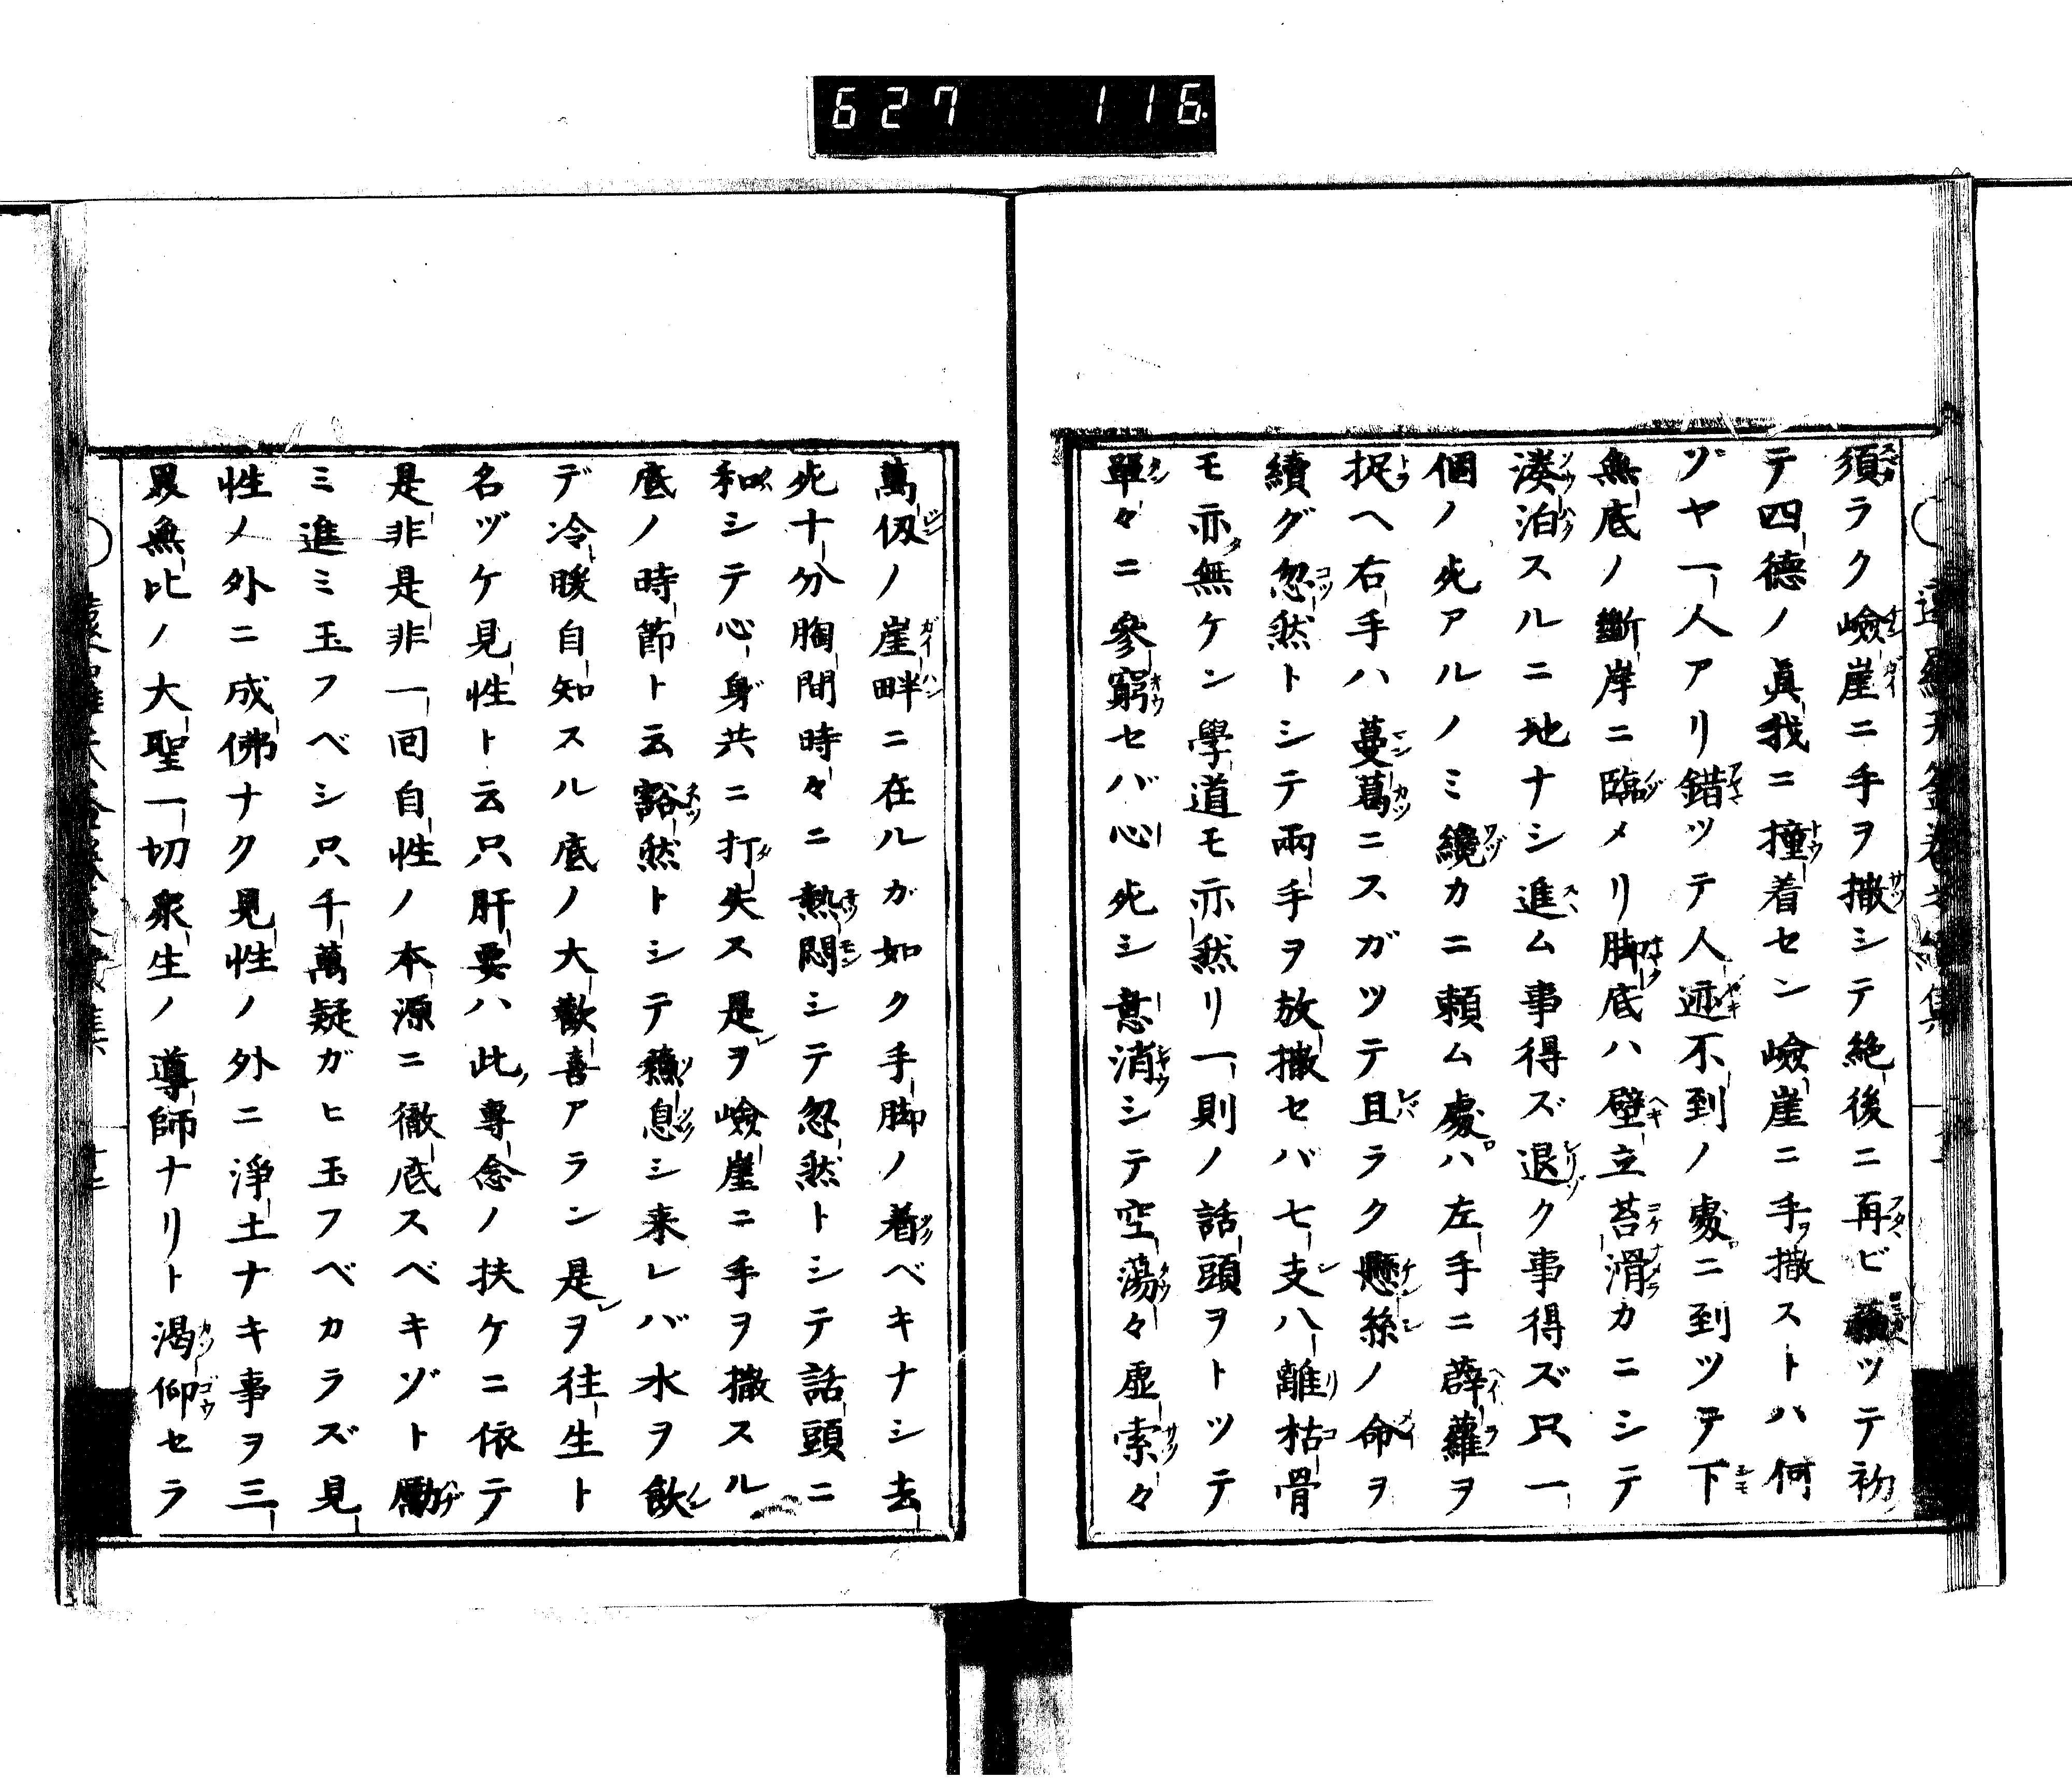 627 116.
須ラク嶮崖ニ手ヲ撒シテ絶後ニ再ビ蘓ツテ初
テ四德ノ眞我ニ撞着セン嶮崖ニ手ヲ撒ストハ何
ゾヤ一人アリ錯ツテ人迹不到ノ處ニ到ツテ下
無底ノ斷岸ニ臨メリ脚底ハ壁立苔滑カニシテ
湊泊スルニ地ナシ進ム事得ズ退ク事得ズ只一
個ノ死アルノミ纔カニ賴ム處ハ左手ニ薜蘿ヲ
捉ヘ右手ハ蔓葛ニスガツテ且ラク懸絲ノ命ヲ
續グ忽然トシテ兩手ヲ放撒セバ七支八離枯骨
モ亦無ケン學道モ亦然リ一則ノ話頭ヲトツテ
單々ニ參窮セバ心死シ意消シテ空蕩々虛索々
萬仭ノ崖畔ニ在ルガ如ク手脚ノ着ベキナシ去
死十分胸間時々ニ熱悶シテ忽然トシテ話頭ニ
和シテ心身共ニ打失ス是ヲ嶮崖ニ手ヲ撒スル
底ノ時節ト云豁然トシテ穌息シ来レバ水ヲ飮
デ冷暖自知スル底ノ大歡喜アラン是ヲ往生ト
名ヅケ見性ト云只肝要ハ此專念ノ扶ケニ依テ
是非是非一回自性ノ本源ニ徹底スベキゾト勵
ミ進ミ玉フベシ只千萬疑ガヒ玉フベカラズ見
性ノ外ニ成佛ナク見性ノ外ニ淨土ナキ事ヲ三
界無比ノ大聖一切衆生ノ導師ナリト渴仰セラ